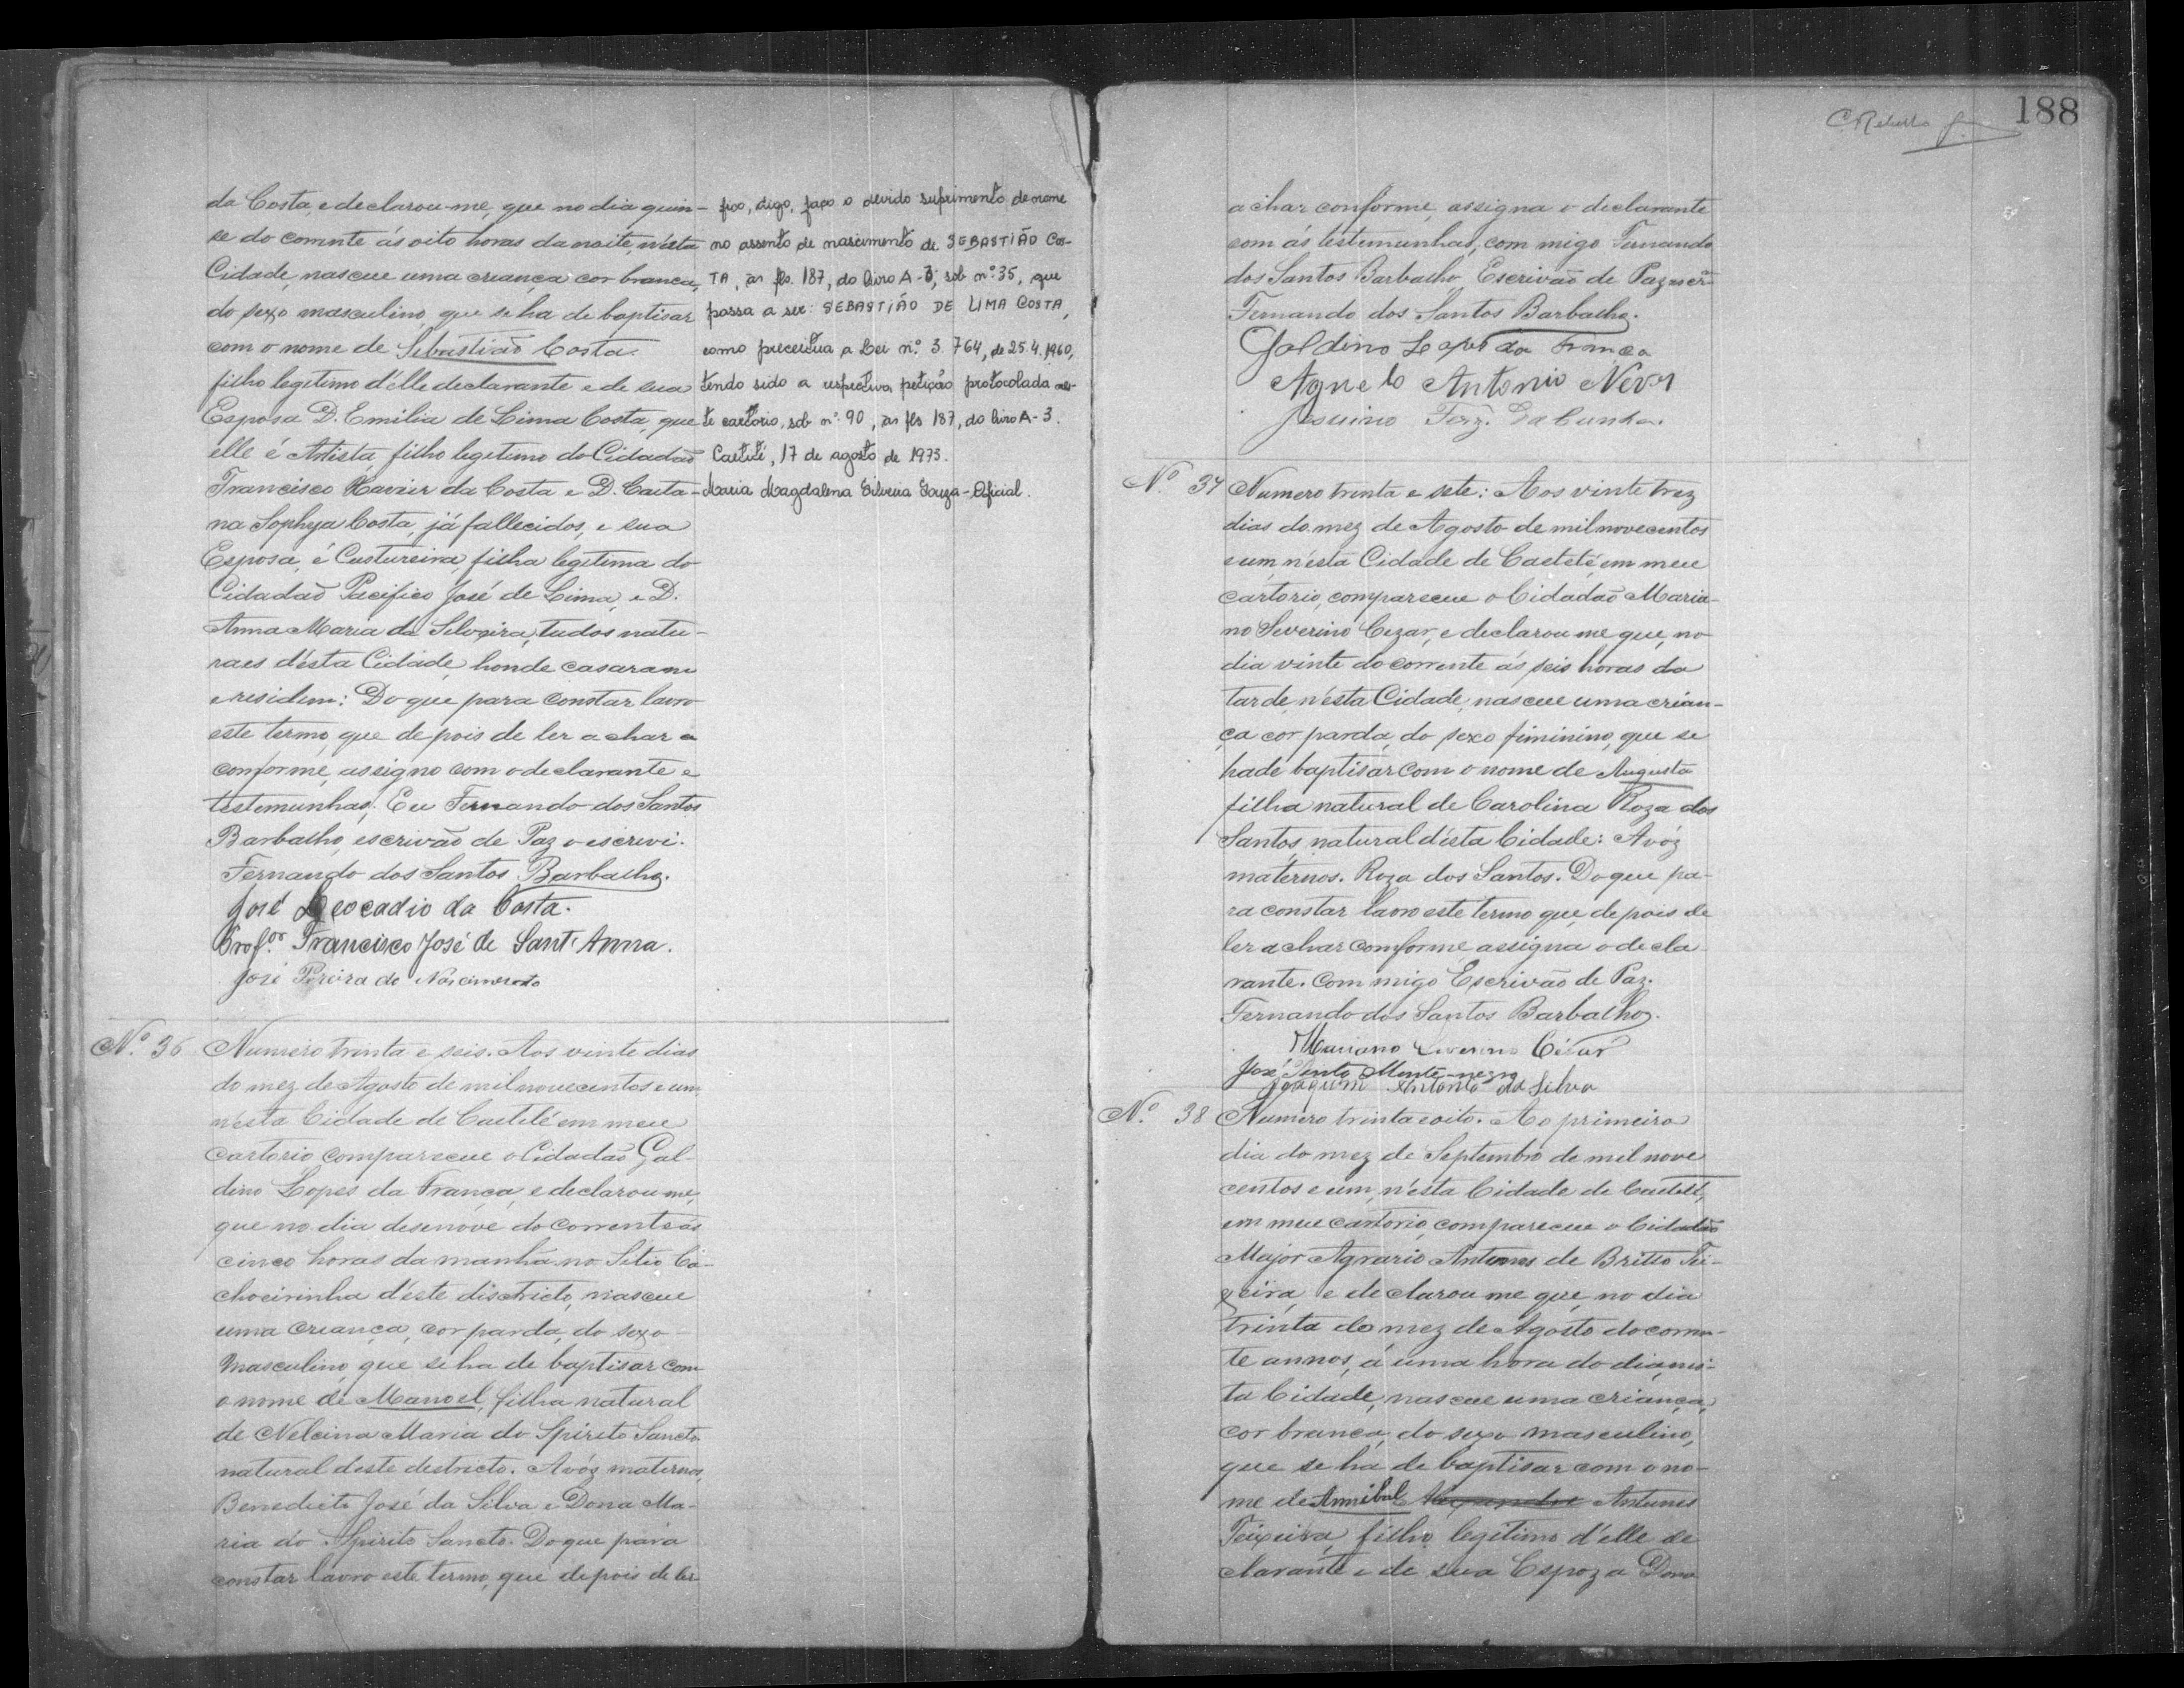 da Costa, e declarou-me, que no dia quin-
se do corrente ás oito horas da noite, n'esta
Cidade, nasceu uma criança cor branca,
do sexo masculino, que se ha de baptisar
com o nome de Sebastião Costa
filho legitimo d'elle declarante e de sua
Esposa D. Emilia de Lima Costa, que
elle é Artista, filho legetimo do Cidadão
Francisco Xavier da Costa e D. Caeta-
na Sophya Costa, já fallecidos, e sua
Esposa, é Custureira, filha legitima do
Cidadão Pacifico José de Lima, e D.
Anna Maria da Silveira, tudos natu-
raes d'ésta Cidade, honde casaram
e residem: Do que para constar lavro
este termo, que depois de ler a char a
conforme, assigno com o declarante e
testemunhas. Eu Fernando dos Santos
Barbalho, escrivão de Paz o escrevi.
Fernando dos Santos Barbalho.
José Leocadio da Costa.
Prof.or Francisco José de Sant'Anna.
José Pereira do Nascimento
fixo, digo, faço o devido suprimento de nome
no assento de nascimento de SEBASTIÃO COS-
TA, às fls. 187, do livro A-3, sob nº 35, que
passa a ser: SEBASTIÃO DE LIMA COSTA,
como preceitua a Lei nº 3.764, de 25.4.1960,
tendo sido a respectiva petição protocolada nes-
te cartório, sob nº 90, às fls 187, do livro A-3.
Caetité, 17 de agosto de 1973.
Maria Magdalena Silveira Souza - Oficial.
Nº 36 Numero trinta e seis. Aos vinte dias
do mez de Agosto de mil novecentos e um
n'ésta Cidade de Caetité em meu
Cartorio compareceu o Cidadão Gal-
dino Lopes da França, e declarou-me,
que no dia desenove do corrente ás
cinco horas da manhã no Sitio Ca-
choeirinha d'éste districto, nasceu
uma criança, cor parda, do sexo
masculino, que se ha de baptisar com
o nome de Manoel, filha natural
de Nelcina Maria do Spirito Sancto
natural deste destricto. Avóz maternos,
Benedicto José da Silva e Dona Ma-
ria do Spirito Sancto. Do que para
constar lavro este termo, que depois de ler
188
a char conforme, assigna o declarante
com ás testemunhas, com migo Fernando
dos Santos Barbalho Escrivão de Paz
Fernando dos Santos Barbalho.
Galdino Lopes da França
Agnelo Antonio Neves
Jesuino Ferz. da Cunha.
Nº 37 Numero trinta e sete: Aos vinte trez
dias do mez de Agosto de mil novecentos
e um, n'ésta Cidade de Caetité, em meu
cartorio, compareceu o Cidadão Maria-
no Severino Cezar, e declarou me que, no
dia vinte do corrente ás seis horas da
tarde, n'ésta Cidade, nasceu uma crian-
ça cor parda, do sexo fiminino, que se
hade baptisar com o nome de Augusta
filha natural de Carolina Roza dos
Santos, natural d'ésta Cidade: Avóz
maternos. Roza dos Santos. Do que pa-
ra constar lavro este termo que, depois de
ler a char conforme, assigna o decla-
rante. Com migo Escrivão de Paz.
Fernando dos Santos Barbalho.
Mariano Severino César
José Pinto Monte-negro
Joaquim Antonio da Silva
Nº 38 Numero trinta e oito. Ao primeiro
dia do mez de Septembro de mil nove
centos e um, n'ésta Cidade de Caetité,
em meu cartorio, compareceu o Cidadão
Major Agrario Antunes de Britto Tei-
xeira, e declarou me que, no dia
trinta do mez de Agosto do corren-
te annos, á uma hora do dia, nés-
ta Cidade, nasceu uma criança,
cor branca, do sexo masculino,
que se ha de baptisar com o no-
me de Annibal Antunes
Teixeira, filho legitimo d'elle de
clarante e de sua Espoza Dona